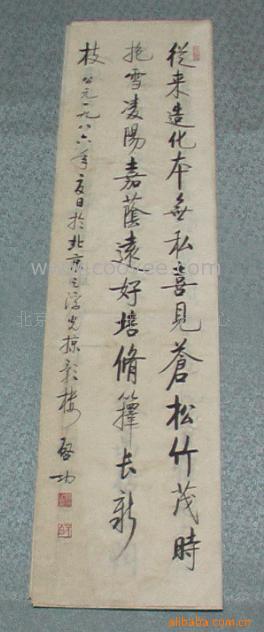 從来造化本無私喜見蒼松竹茂時
抱雪凌陽嘉蔭遠好培脩箨长新
枝 公元一九八六年夏日於北京之浮光掠影楼 啓功
www.cooyee.com
alibaba.com.cn